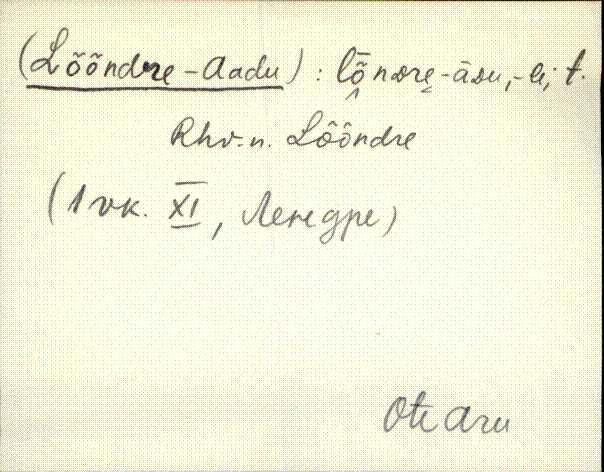 (Lõõndre-Aadu) : lȭnDre-āDu, -le; t.
Rhv. n. Lõõndre
(1 vk. XI, Лендре)
Ote Aru